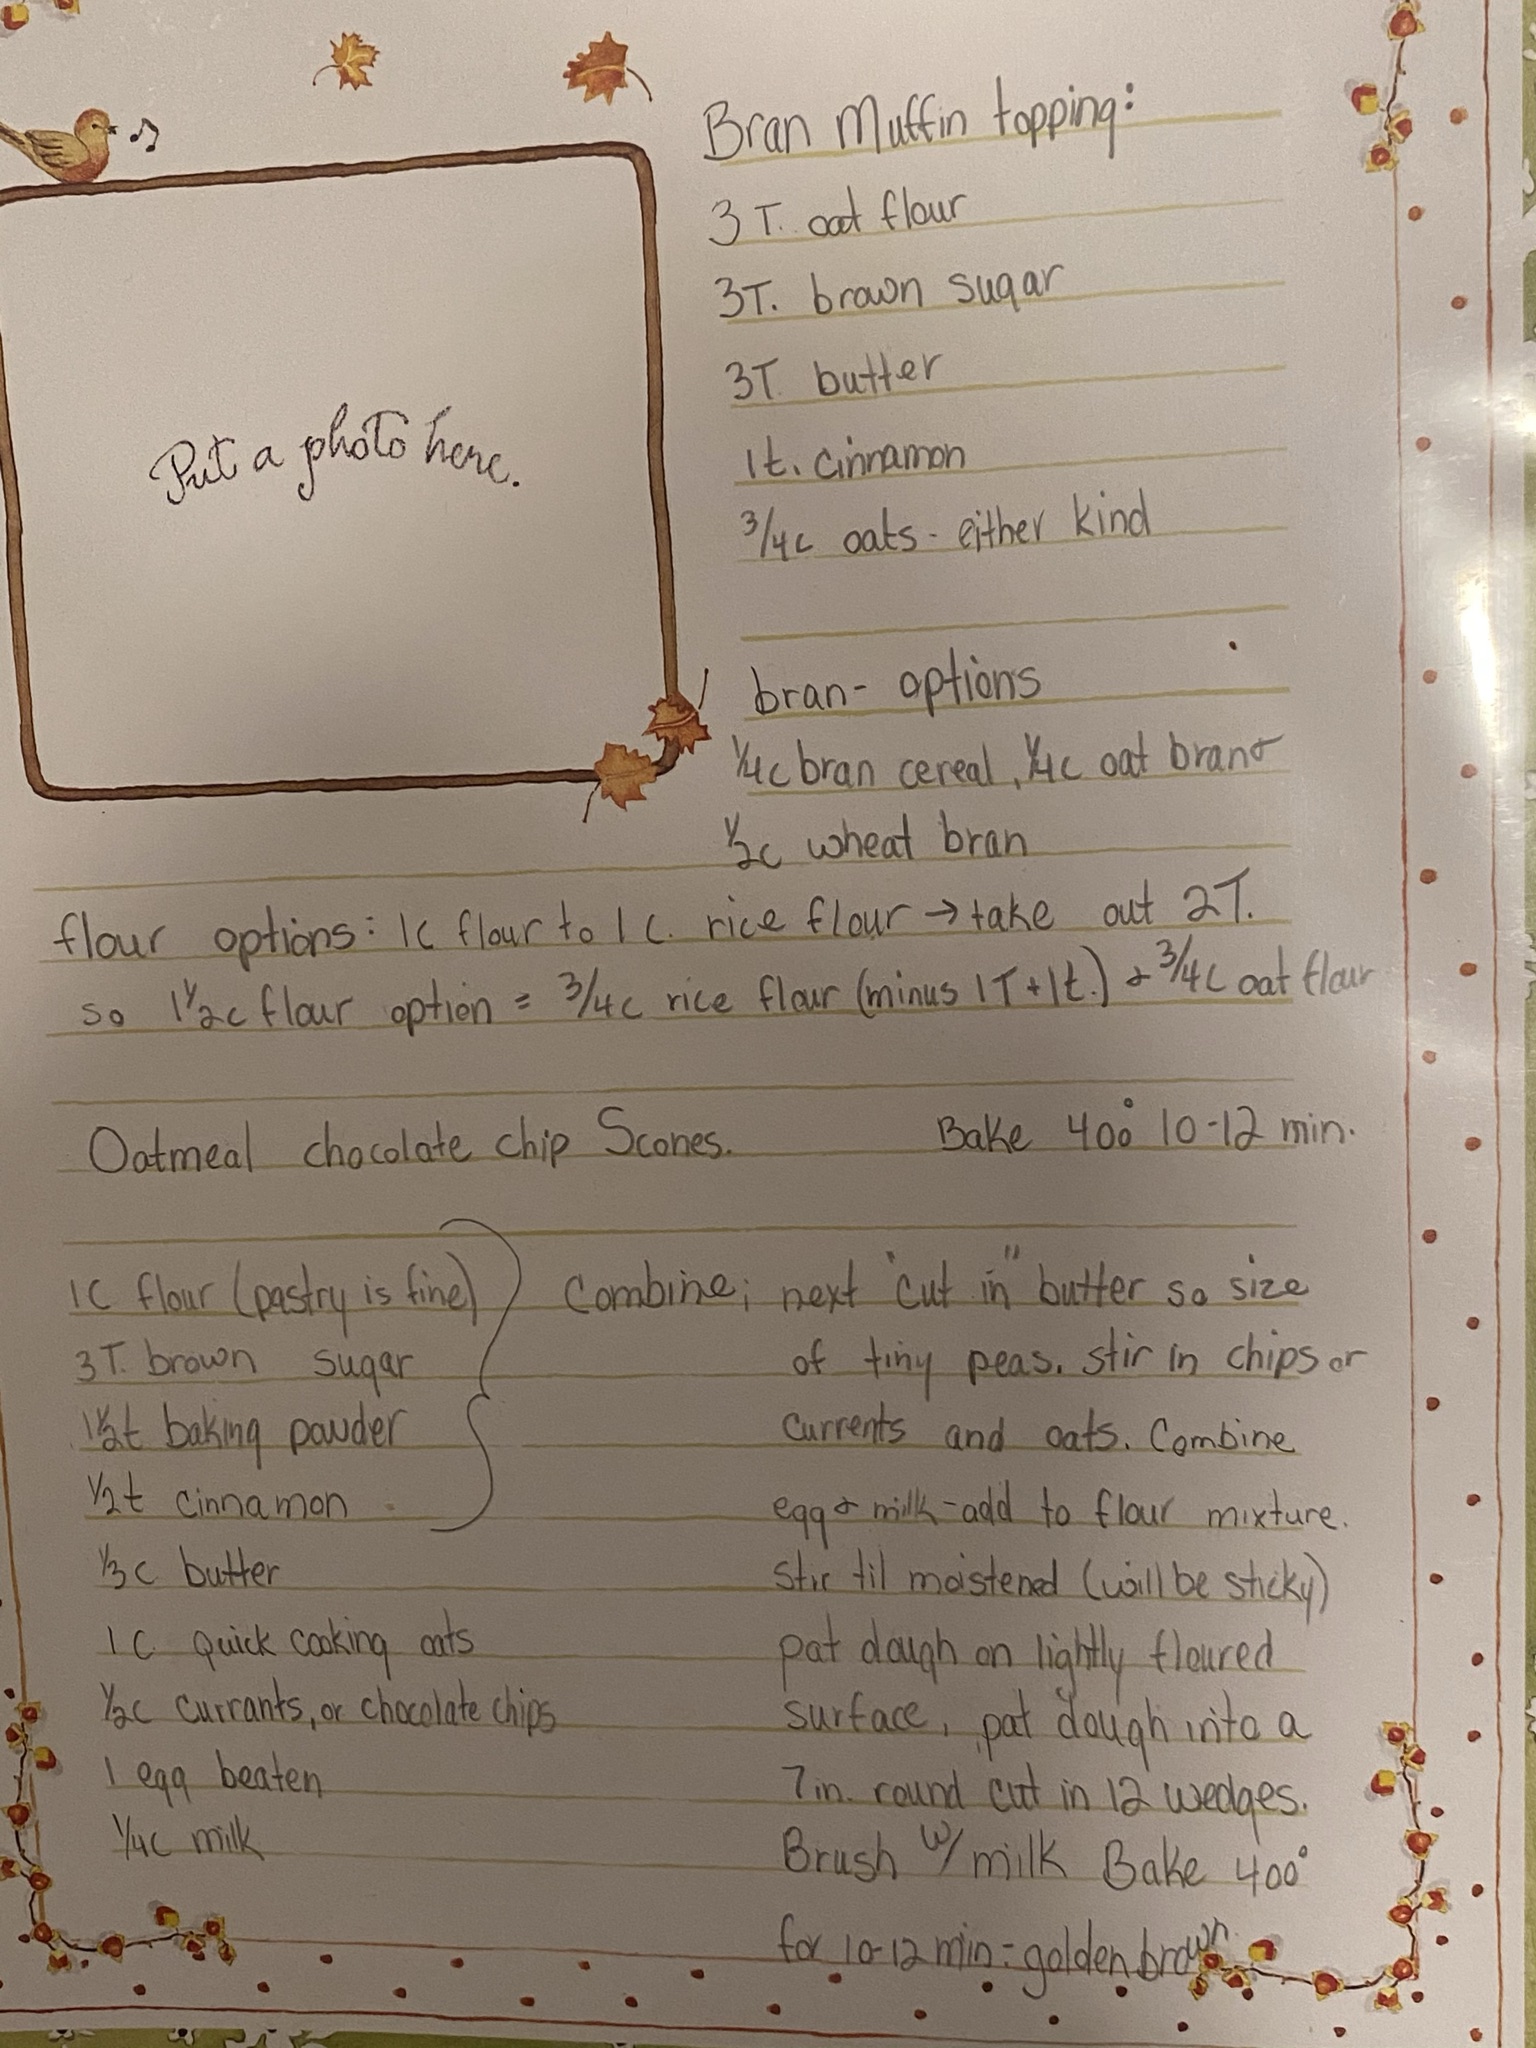 Put a photo here.
Bran Muffin topping:
3 T. oat flour
3T. brown sugar
3T. butter
1t. cinnamon
3/4c oats - either kind
bran- options
1/4c bran cereal, 1/4c oat bran &
1/2c wheat bran
flour options: 1c flour to 1 c. rice flour → take out 2T.
so 1 1/2c flour option = 3/4c rice flour (minus 1T + 1t.) & 3/4c oat flour
Oatmeal chocolate chip Scones. Bake 400° 10-12 min.
1c flour (pastry is fine)
3T. brown sugar
1 1/2t baking powder
1/2t cinnamon
1/3c butter
1c quick cooking oats
1/2c currants, or chocolate chips
1 egg beaten
1/4c milk
Combine; next "cut in" butter so size
of tiny peas. stir in chips or
currents and oats. Combine
egg & milk - add to flour mixture.
stir til moistened (will be sticky)
pat dough on lightly floured
surface, pat dough into a
7in. round cut in 12 wedges.
Brush w/ milk Bake 400°
for 10-12 min - golden brown